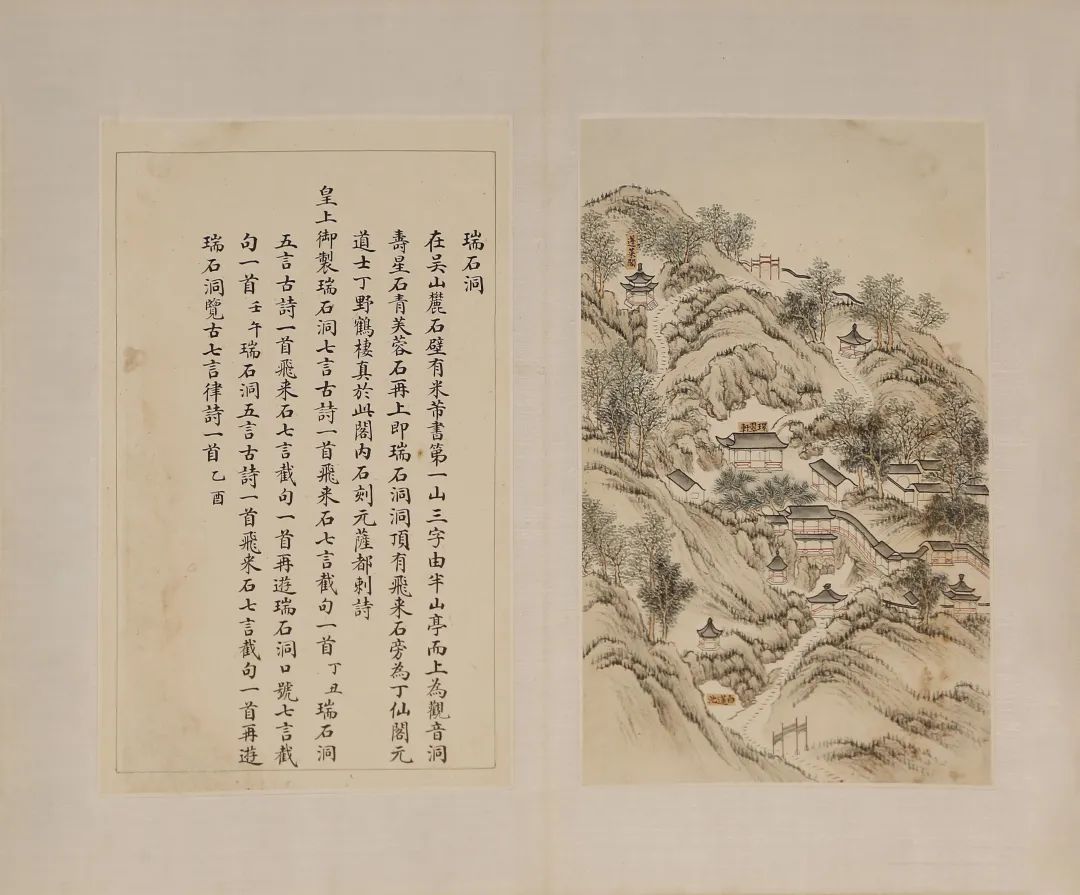 瑞石洞
在吴山麓石壁有米芾書第一山三字由半山亭而上為觀音洞
壽星石青芙蓉石再上即瑞石洞洞頂有飛来石旁為丁仙閣元
道士丁野鶴棲真於此閣内石刻元薩都剌詩
皇上御製瑞石洞七言古詩一首飛来石七言截句一首丁丑瑞石洞
五言古詩一首飛来石七言截句一首再遊瑞石洞口號七言截
句一首壬午瑞石洞五言古詩一首飛来石七言截句一首再遊
瑞石洞覽古七言律詩一首乙酉
蓬萊閣
環翠軒